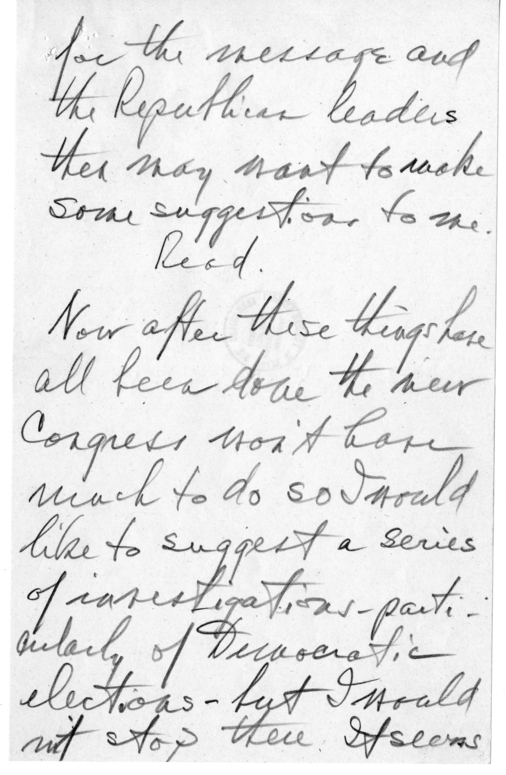 for the message and
the Republican leaders
then may want to make
some suggestions to me.
Read.
Now after these things have
all been done the new
Congress won't have
much to do so I would
like to suggest a series
of investigations - parti-
cularly of Democratic
elections - but I would
not stop there. It seems